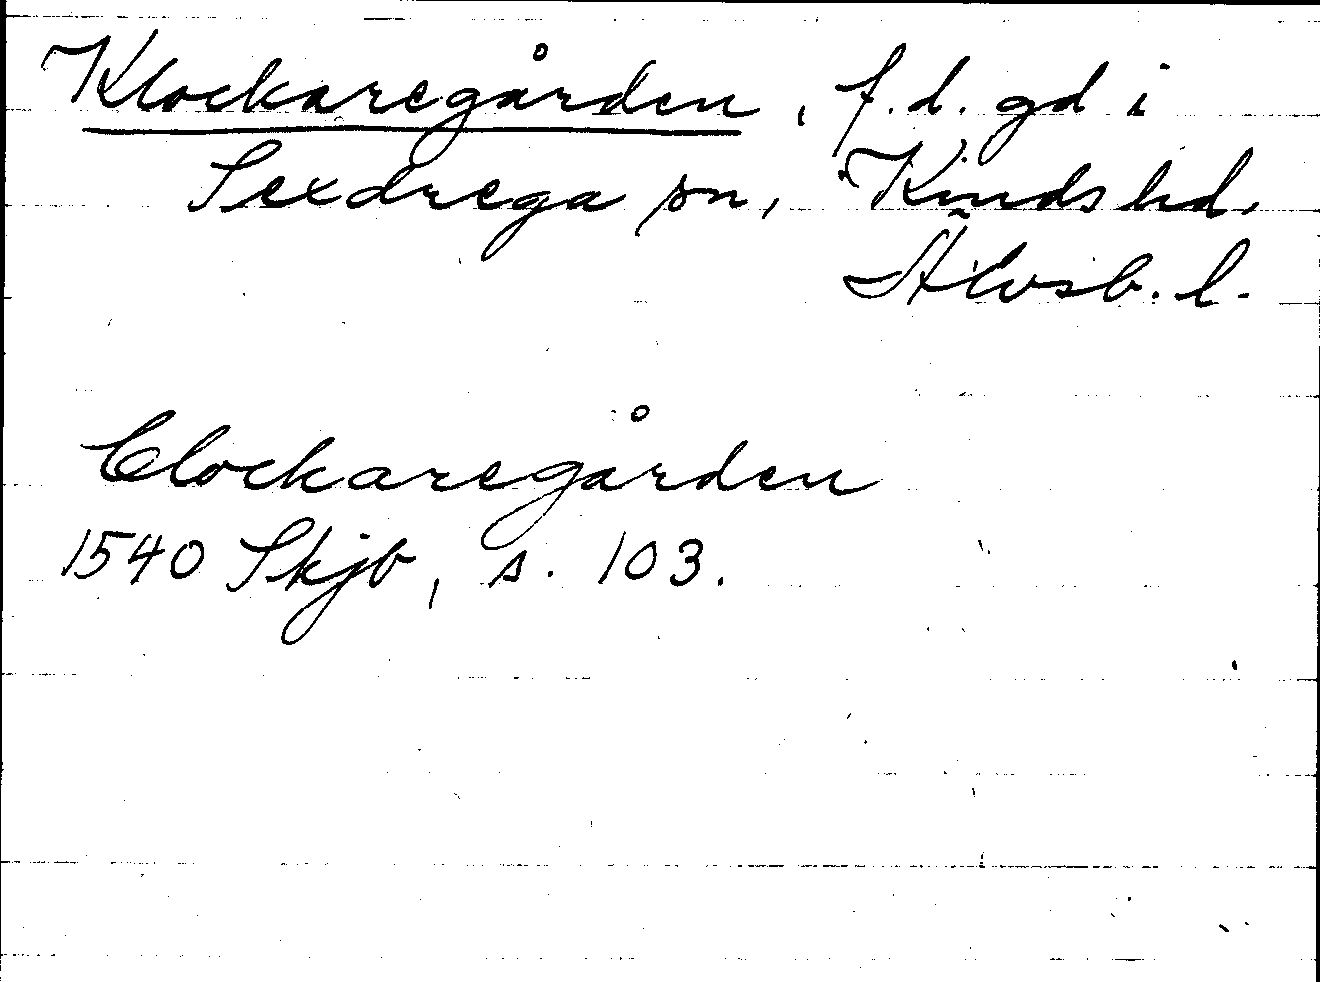 Klockaregården, f.d. gd i
Sexdrega sn, Kinds hd,
Älvsb. l.
Clockaregården
1540 Skjb, s. 103.